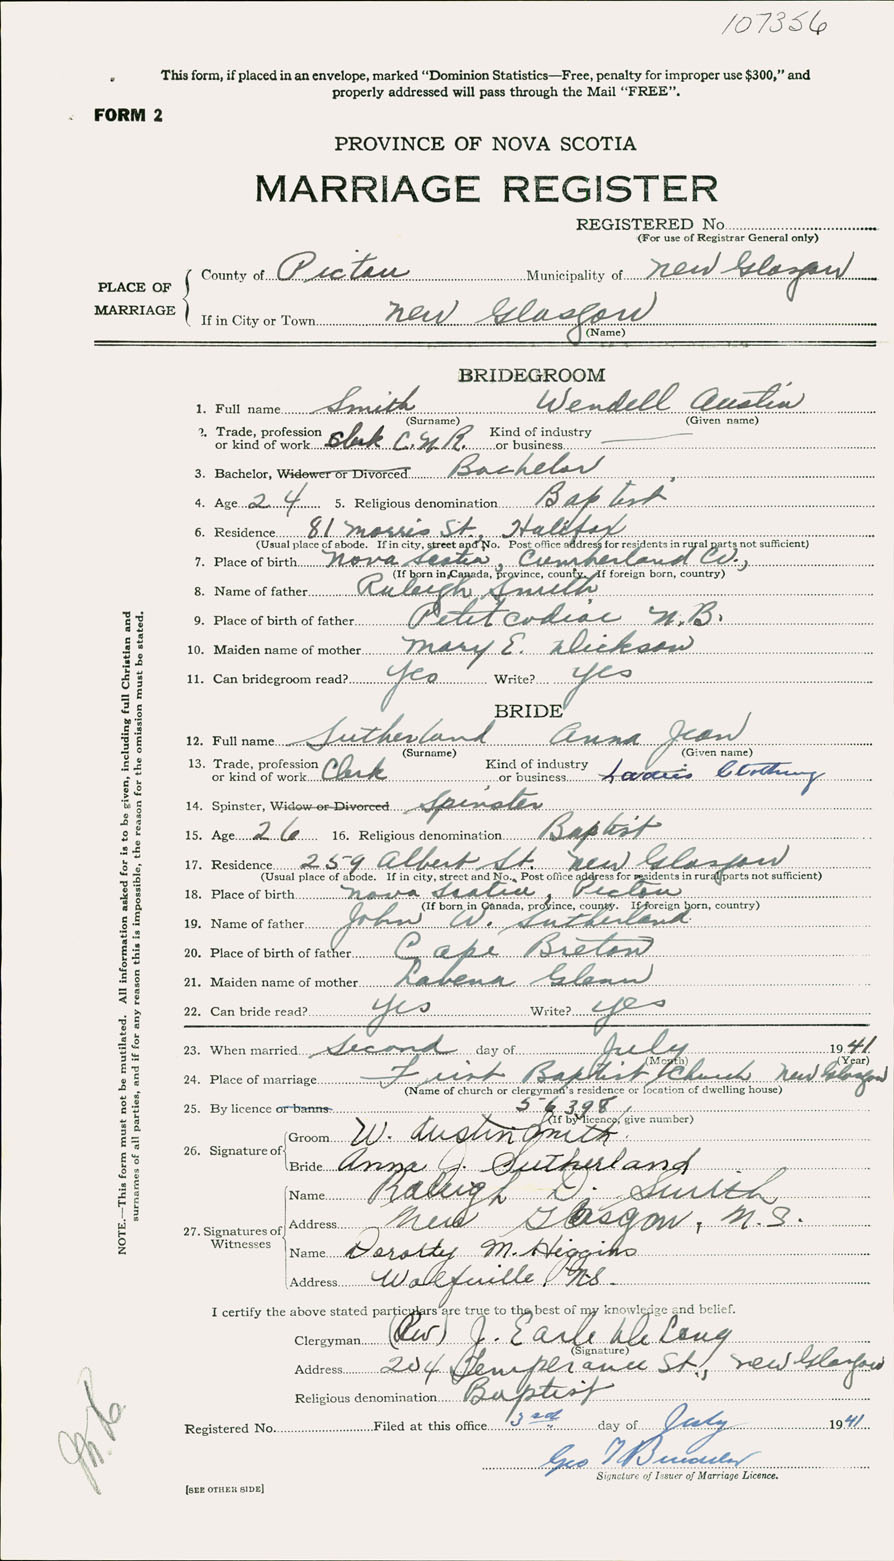 107356
This form, if placed in an envelope, marked "Dominion Statistics—Free, penalty for improper use $300," and
properly addressed will pass through the Mail "FREE".
FORM 2
PROVINCE OF NOVA SCOTIA
MARRIAGE REGISTER
REGISTERED No.
(For use of Registrar General only)
PLACE OF MARRIAGE
County of Pictou Municipality of New Glasgow
If in City or Town New Glasgow
(Name)
BRIDEGROOM
1. Full name Smith Wendell Austin
(Surname) (Given name)
2. Trade, profession or kind of work Clerk C.N.R. Kind of industry or business
3. Bachelor, Widower or Divorced Bachelor
4. Age 24 5. Religious denomination Baptist
6. Residence 81 Morris St., Halifax
(Usual place of abode. If in city, street and No. Post office address for residents in rural parts not sufficient)
7. Place of birth Nova Scotia, Cumberland Co.,
(If born in Canada, province, county. If foreign born, country)
8. Name of father Raleigh Smith
9. Place of birth of father Petitcodiac N.B.
10. Maiden name of mother Mary E. Dickson
11. Can bridegroom read? Yes Write? Yes
BRIDE
12. Full name Sutherland Anna Jean
(Surname) (Given name)
13. Trade, profession or kind of work Clerk Kind of industry or business Ladies Clothing
14. Spinster, Widow or Divorced Spinster
15. Age 26 16. Religious denomination Baptist
17. Residence 259 Albert St. New Glasgow
(Usual place of abode. If in city, street and No. Post office address for residents in rural parts not sufficient)
18. Place of birth Nova Scotia, Pictou
(If born in Canada, province, county. If foreign born, country)
19. Name of father John W. Sutherland
20. Place of birth of father Cape Breton
21. Maiden name of mother Lavena Glenn
22. Can bride read? Yes Write? Yes
23. When married Second day of July 1941
(Month) (Year)
24. Place of marriage First Baptist Church New Glasgow
(Name of church or clergyman's residence or location of dwelling house)
25. By licence or banns 56398
(If by licence, give number)
26. Signature of Groom W. Austin Smith
Bride Anna J. Sutherland
27. Signatures of Witnesses
Name Raleigh D. Smith
Address New Glasgow, N.S.
Name Dorothy M. Higgins
Address Wolfville N.S.
I certify the above stated particulars are true to the best of my knowledge and belief.
Clergyman (Rev) J. Earle DeLong
(Signature)
Address 204 Temperance St., New Glasgow
Religious denomination Baptist
Registered No. Filed at this office 3rd day of July 1941
Geo
Signature of Issuer of Marriage Licence.
[SEE OTHER SIDE]
NOTE.—This form must not be mutilated. All information asked for is to be given, including full Christian and
surnames of all parties, and if for any reason this is impossible, the reason for the omission must be stated.